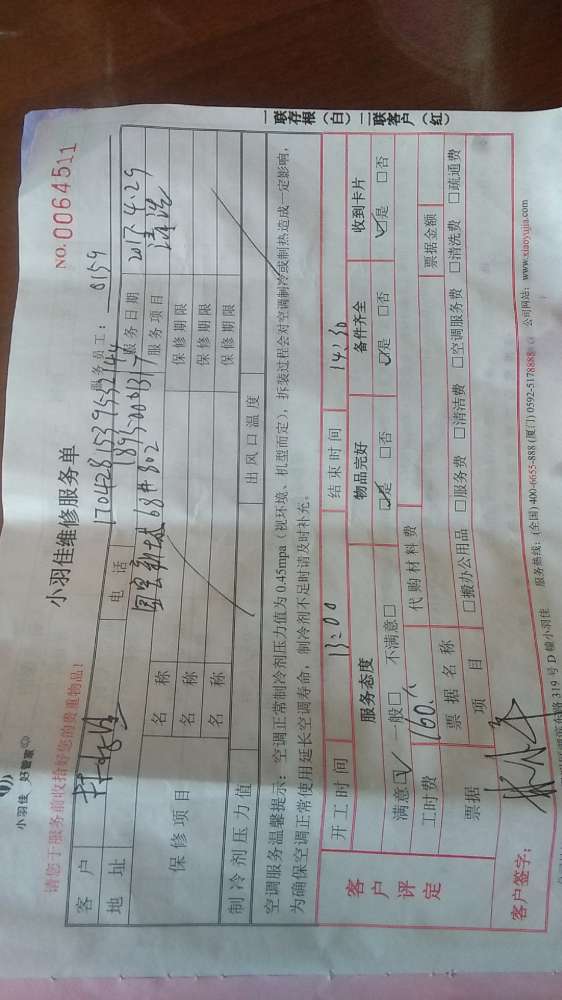 小羽佳 好管家
小羽佳维修服务单
NO. 0064511
请您于服务前收拾好您的贵重物品!
服务员工: 0159
客户
电话 17042815396332144
18950001317
地址 68# 302
服务日期 2017.4.29
服务项目 清洗
保修项目
名称
保修期限
名称
保修期限
名称
保修期限
制冷剂压力值
出风口温度
空调服务温馨提示:空调正常制冷剂压力值为0.45mpa(视环境、机型而定),拆装过程会对空调制冷或制热造成一定影响,
为确保空调正常使用延长空调寿命,制冷剂不足时请及时补充。
客户评定
开工时间 13:00
结束时间 14:30
服务态度
物品完好
备件齐全
收到卡片
满意☑ 一般□ 不满意□
☑是 □否
☑是 □否
☑是 □否
工时费 160.
代购材料费
票据
票据名称
票据金额
项目
□搬办公用品 □服务费 □清洁费 □空调服务费 □清洗费 □疏通费
客户签字:
319号D幢小羽佳 服务热线:(全国) 400-6655-888 (厦门) 0592-5178888 公司网站: www.xiaoyujia.com
一联存根(白) 二联客户(红)